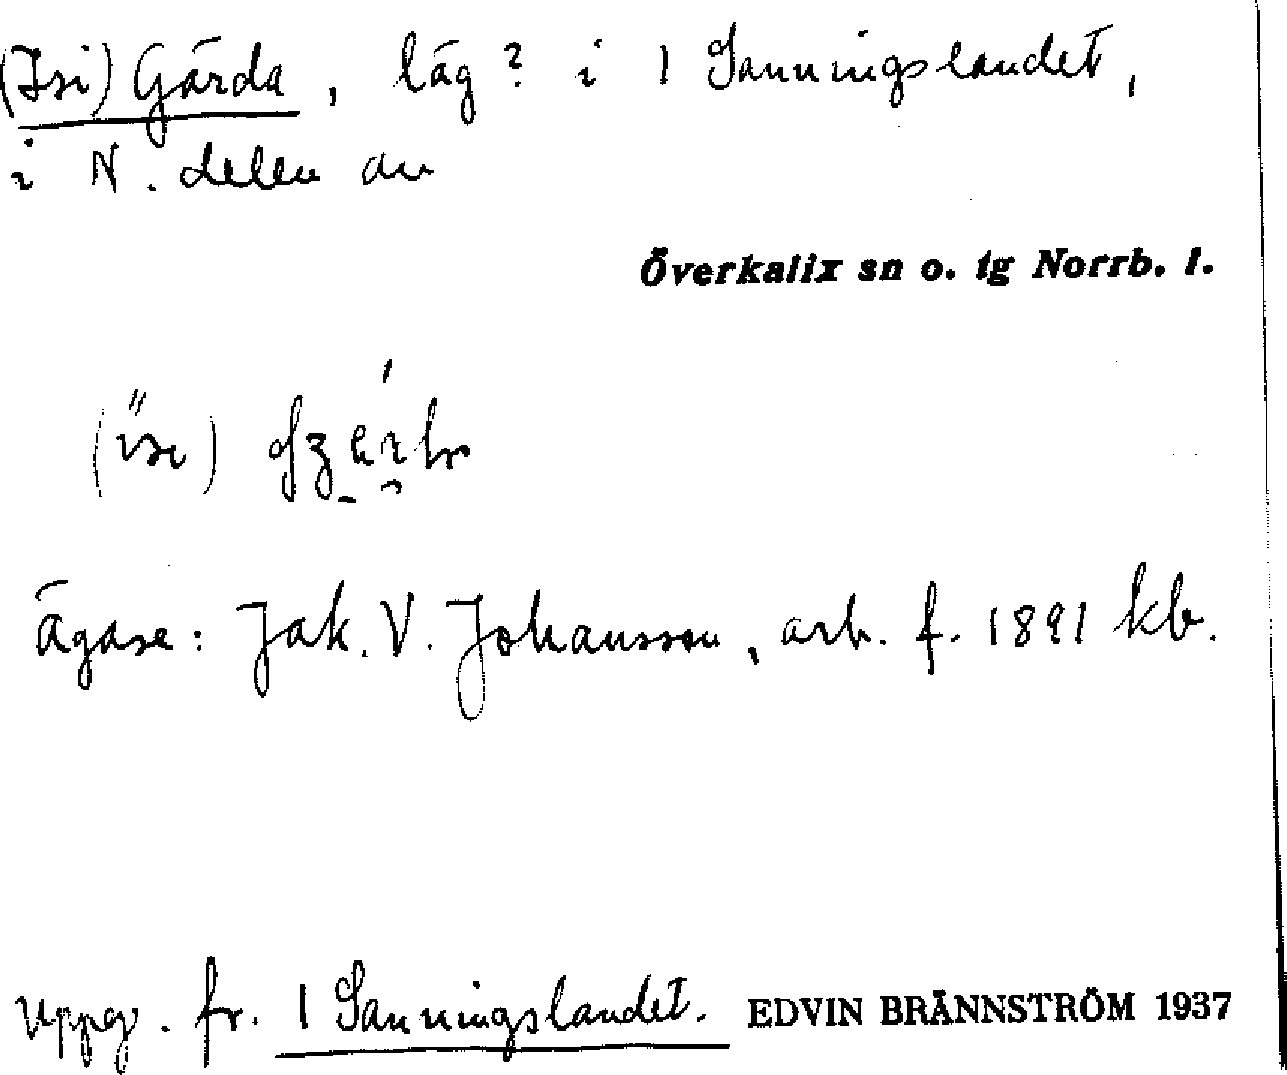 (Isi) Gärda, läg? i 1 Sanningslandet,
i N. delen av
Överkalix sn o. tg Norrb. l.
ägare: Jak. V. Johansson, arb. f. 1891 kb.
Uppg. fr. 1 Sanningslandet. EDVIN BRÄNNSTRÖM 1937